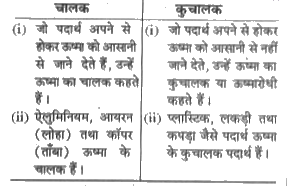 चालक
कुचालक
(i) जो पदार्थ अपने से
होकर ऊष्मा को आसानी
से जाने देते हैं, उन्हें
ऊष्मा का चालक कहते
हैं।
(i) जो पदार्थ अपने से होकर
ऊष्मा को आसानी से नहीं
जाने देते, उन्हें ऊष्मा का
कुचालक या ऊष्मारोधी
कहते हैं।
(ii) ऐलुमिनियम, आयरन
(लोहा) तथा कॉपर
(ताँबा) ऊष्मा के
चालक हैं।
(ii) प्लास्टिक, लकड़ी तथा
कपड़ा जैसे पदार्थ ऊष्मा
के कुचालक पदार्थ हैं।